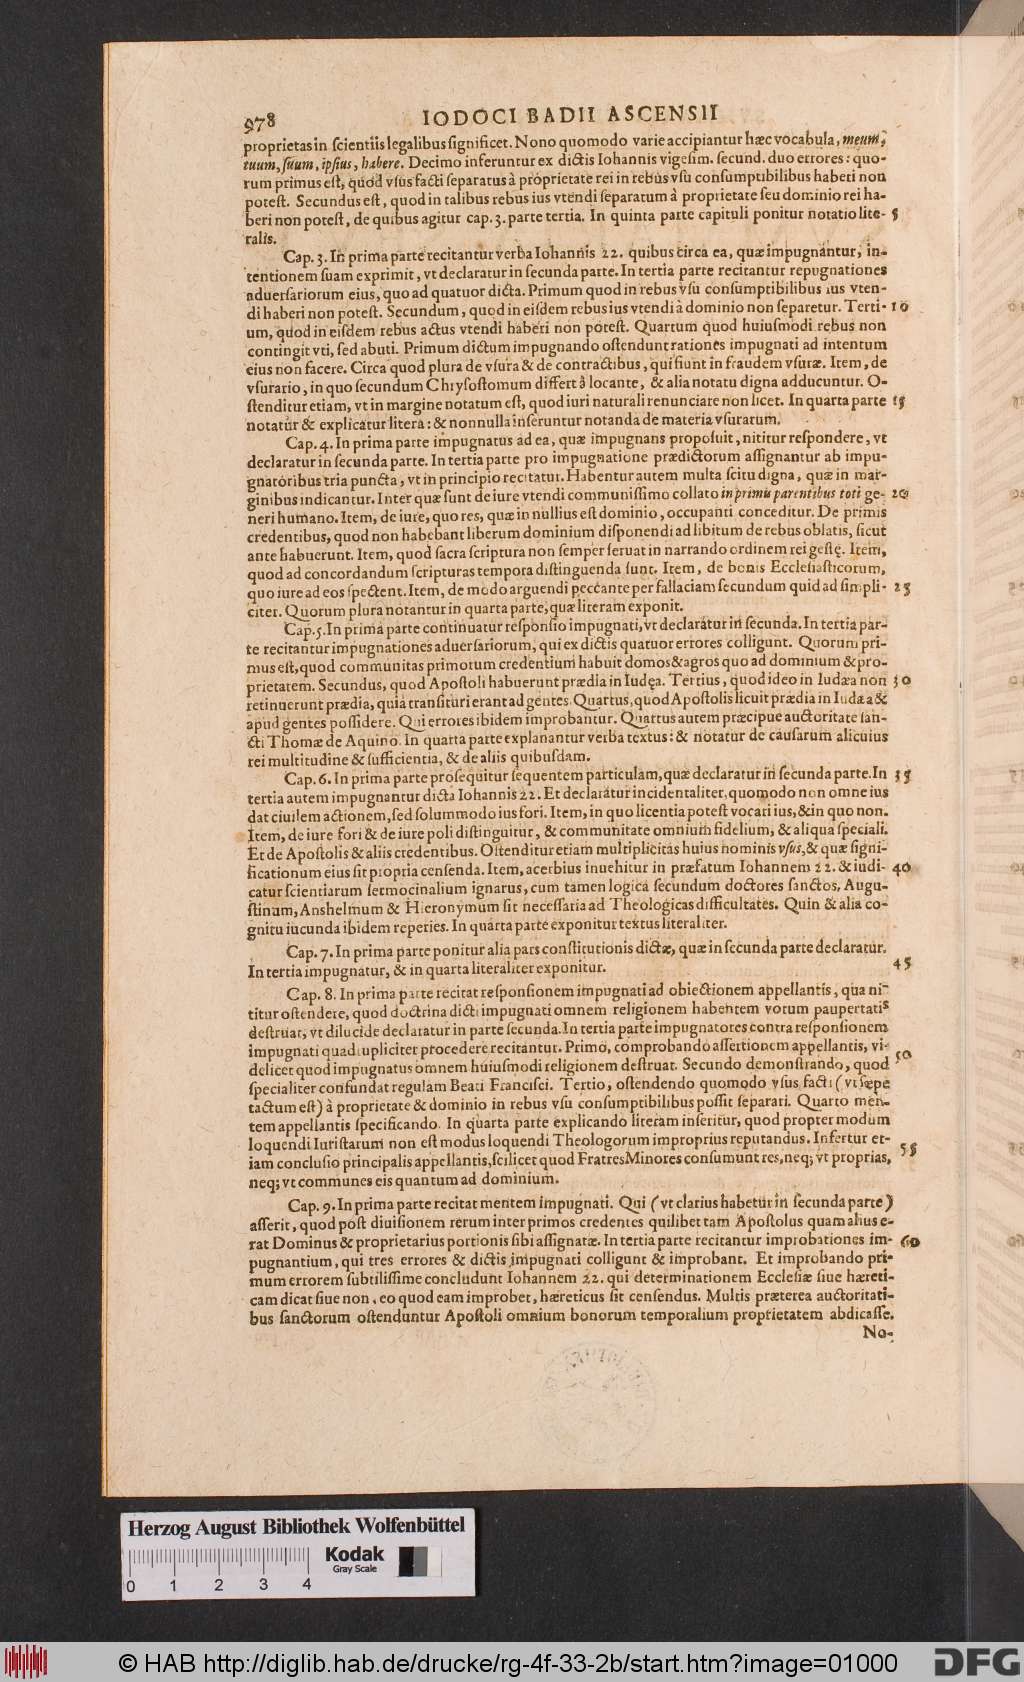 978
IODOCI BADII ASCENSII
proprietas in scientiis legalibus significet. Nono quomodo varie accipiantur hæc vocabula, meum,
tuum, suum, ipsius, habere. Decimo inferuntur ex dictis Iohannis vigesim. secund. duo errores: quo-
rum primus est, quód vsus facti separatus à proprietate rei in rebus vsu consumptibilibus haberi non
potest. Secundus est, quod in talibus rebus ius vtendi separatum à proprietate seu dominio rei ha-
beri non potest, de quibus agitur cap. 3. parte tertia. In quinta parte capituli ponitur notatio lite- 5
ralis.
Cap. 3. In prima parte recitantur verba Iohannis 22. quibus circa ea, quæ impugnantur, in-
tentionem suam exprimit, vt declaratur in secunda parte. In tertia parte recitantur repugnationes
aduersariorum eius, quo ad quatuor dicta. Primum quod in rebus vsu consumptibilibus ius vten-
di haberi non potest. Secundum, quod in eisdem rebus ius vtendi à dominio non separetur. Terti- 10
um, quod in eisdem rebus actus vtendi haberi non potest. Quartum quod huiusmodi rebus non
contingit vti, sed abuti. Primum dictum impugnando ostendunt rationes impugnati ad intentum
eius non facere. Circa quod plura de vsura & de contractibus, qui fiunt in fraudem vsuræ. Item, de
vsurario, in quo secundum Chrysostomum differt à locante, & alia notatu digna adducuntur. O-
stenditur etiam, vt in margine notatum est, quod iuri naturali renunciare non licet. In quarta parte 15
notatur & explicatur litera: & nonnulla inseruntur notanda de materia vsurarum.
Cap. 4. In prima parte impugnatus ad ea, quæ impugnans proposuit, nititur respondere, vt
declaratur in secunda parte. In tertia parte pro impugnatione prædictorum assignantur ab impu-
gnatoribus tria puncta, vt in principio recitatur. Habentur autem multa scitu digna, quæ in mar-
ginibus indicantur. Inter quæ sunt de iure vtendi communissimo collato in primis parentibus toti ge- 20
neri humano. Item, de iure, quo res, quæ in nullius est dominio, occupanti conceditur. De primis
credentibus, quod non habebant liberum dominium disponendi ad libitum de rebus oblatis, sicut
ante habuerunt. Item, quod sacra scriptura non semper seruat in narrando ordinem rei gestę. Item,
quod ad concordandum scripturas tempora distinguenda sunt. Item, de bonis Ecclesiasticorum,
quo iure ad eos spectent. Item, de modo arguendi peccante per fallaciam secundum quid ad simpli- 25
citer. Quorum plura notantur in quarta parte, quæ literam exponit.
Cap. 5. In prima parte continuatur responsio impugnati, vt declaratur in secunda. In tertia par-
te recitantur impugnationes aduersariorum, qui ex dictis quatuor errores colligunt. Quorum pri-
mus est, quod communitas primorum credentium habuit domos & agros quo ad dominium & pro-
prietatem. Secundus, quod Apostoli habuerunt prædia in Iudęa. Tertius, quod ideo in Iudæa non 30
retinuerunt prædia, quia transituri erant ad gentes. Quartus, quod Apostolis licuit prædia in Iudæa &
apud gentes possidere. Qui errores ibidem improbantur. Quartus autem præcipue auctoritate san-
cti Thomæ de Aquino. In quarta parte explanantur verba textus: & notatur de causarum alicuius
rei multitudine & sufficientia, & de aliis quibusdam.
Cap. 6. In prima parte prosequitur sequentem particulam, quæ declaratur in secunda parte. In 35
tertia autem impugnantur dicta Iohannis 22. Et declaratur incidentaliter, quomodo non omne ius
dat ciuilem actionem, sed solummodo ius fori. Item, in quo licentia potest vocari ius, & in quo non.
Item, de iure fori & de iure poli distinguitur, & communitate omnium fidelium, & aliqua speciali.
Et de Apostolis & aliis credentibus. Ostenditur etiam multiplicitas huius nominis vsus, & quæ signi-
ficationum eius sit propria censenda. Item, acerbius inuehitur in præfatum Iohannem 22. & iudi- 40
catur scientiarum sermocinalium ignarus, cum tamen logica secundum doctores sanctos, Augu-
stinum, Anshelmum & Hieronymum sit necessaria ad Theologicas difficultates. Quin & alia co-
gnitu iucunda ibidem reperies. In quarta parte exponitur textus literaliter.
Cap. 7. In prima parte ponitur alia pars constitutionis dictæ, quæ in secunda parte declaratur.
In tertia impugnatur, & in quarta literaliter exponitur. 45
Cap. 8. In prima parte recitat responsionem impugnati ad obiectionem appellantis, qua ni-
titur ostendere, quod doctrina dicti impugnati omnem religionem habentem votum paupertatis
destruat, vt dilucide declaratur in parte secunda. In tertia parte impugnatores contra responsionem
impugnati quadrupliciter procedere recitantur. Primo, comprobando assertionem appellantis, vi-
delicet quod impugnatus omnem huiusmodi religionem destruat. Secundo demonstrando, quod 50
specialiter confundat regulam Beati Francisci. Tertio, ostendendo quomodo vsus facti (vt sæpe
tactum est) à proprietate & dominio in rebus vsu consumptibilibus possit separari. Quarto men-
tem appellantis specificando. In quarta parte explicando literam inseritur, quod propter modum
loquendi Iuristarum non est modus loquendi Theologorum improprius reputandus. Infertur et-
iam conclusio principalis appellantis, scilicet quod Fratres Minores consumunt res, neq; vt proprias, 55
neq; vt communes eis quantum ad dominium.
Cap. 9. In prima parte recitat mentem impugnati. Qui (vt clarius habetur in secunda parte)
asserit, quod post diuisionem rerum inter primos credentes quilibet tam Apostolus quam alius e-
rat Dominus & proprietarius portionis sibi assignatæ. In tertia parte recitantur improbationes im- 60
pugnantium, qui tres errores & dictis impugnati colligunt & improbant. Et improbando pri-
mum errorem subtilissime concludunt Iohannem 22. qui determinationem Ecclesiæ siue hæreti-
cam dicat siue non, eo quod eam improbet, hæreticus sit censendus. Multis præterea auctoritati-
bus sanctorum ostenduntur Apostoli omnium bonorum temporalium proprietatem abdicasse.
No-
Herzog August Bibliothek Wolfenbüttel
Kodak
Gray Scale
0 1 2 3 4
© HAB http://diglib.hab.de/drucke/rg-4f-33-2b/start.htm?image=01000
DFG